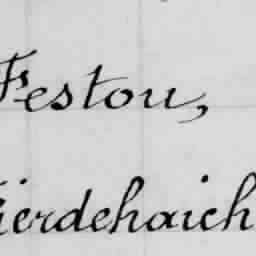 Feston,
Gerdehaich